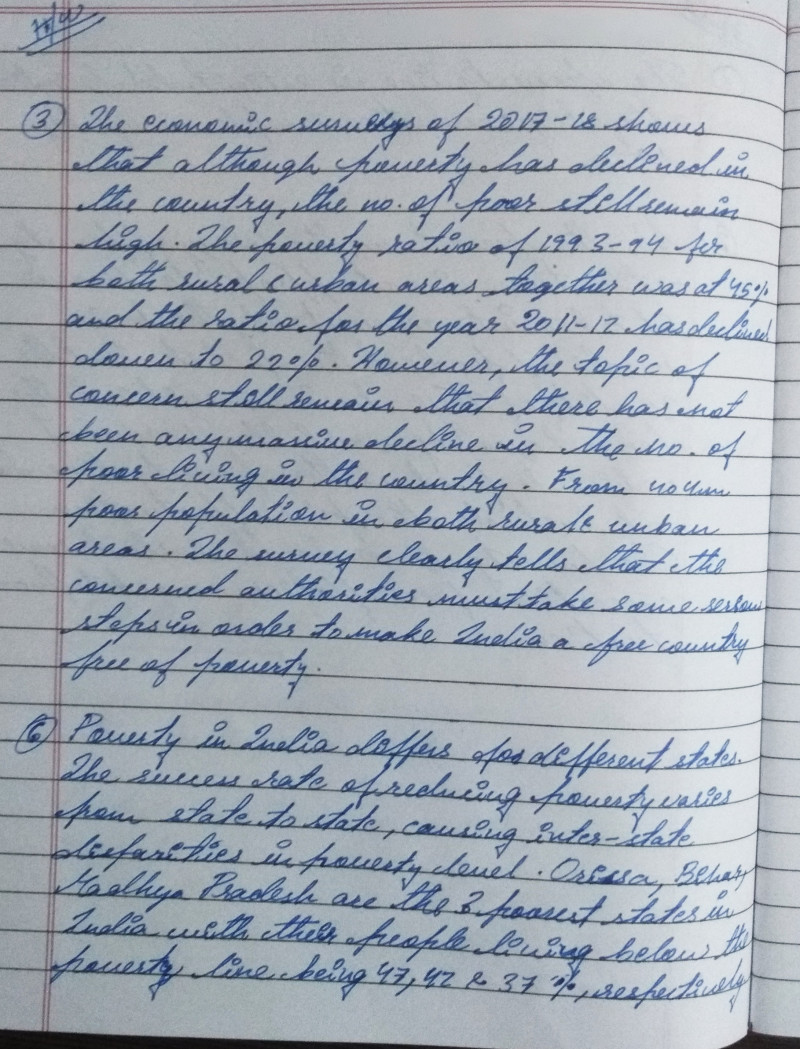 H/W
③ The economic surveys of 2017-18 shows
that although poverty has declined in
the country, the no. of poor still remain
high. The poverty ratio of 1993-94 for
both rural & urban areas together was at 45%
and the ratio for the year 2011-12 has declined
down to 22%. However, the topic of
concern still remain that there has not
been any massive decline in the no. of
poor living in the country. From
poor population in both rural & urban
areas. The survey clearly tells that the
concerned authorities must take some serious
steps in order to make India a free country
free of poverty.
⑥ Poverty in India differs for different states.
The success rate of reducing poverty varies
from state to state, causing inter-state
disparities in poverty level. Orissa, Bihar,
Madhya Pradesh are the 3 poorest states in
India with their people living below the
poverty line being 47, 42 & 37 %, respectively